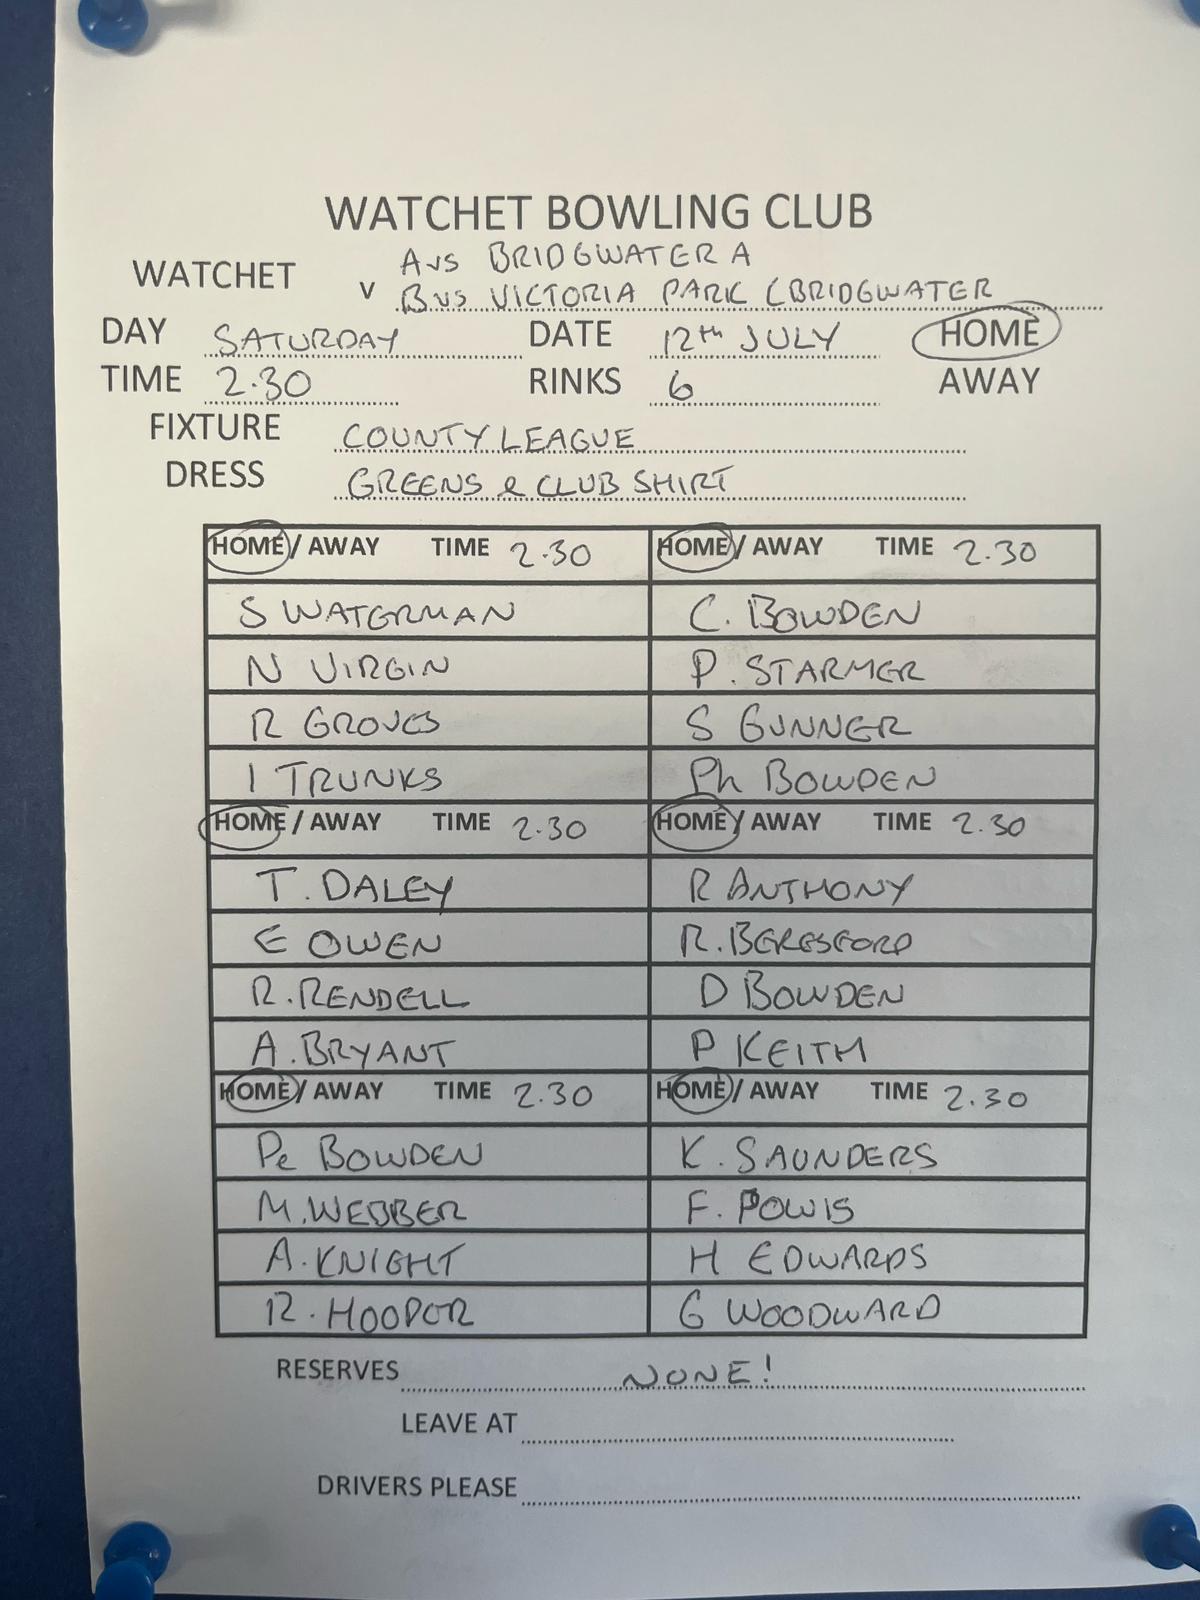 WATCHET BOWLING CLUB
WATCHET v A vs BRIDGWATER A
B vs VICTORIA PARK (BRIDGWATER
DAY SATURDAY DATE 12th JULY HOME
TIME 2.30 RINKS 6 AWAY
FIXTURE COUNTY LEAGUE
DRESS GREENS & CLUB SHIRT
HOME / AWAY TIME 2.30 HOME / AWAY TIME 2.30
S WATERMAN C. BOWDEN
N VIRGIN P. STARMER
R GROVES S GUNNER
I TRUNKS Ph BOWDEN
HOME / AWAY TIME 2.30 HOME / AWAY TIME 2.30
T. DALEY R ANTHONY
E OWEN R. BERESFORD
R. RENDELL D BOWDEN
A. BRYANT P KEITH
HOME / AWAY TIME 2.30 HOME / AWAY TIME 2.30
Pe BOWDEN K. SAUNDERS
M. WEBBER F. POWIS
A. KNIGHT H EDWARDS
R. HOOPER G WOODWARD
RESERVES NONE!
LEAVE AT
DRIVERS PLEASE